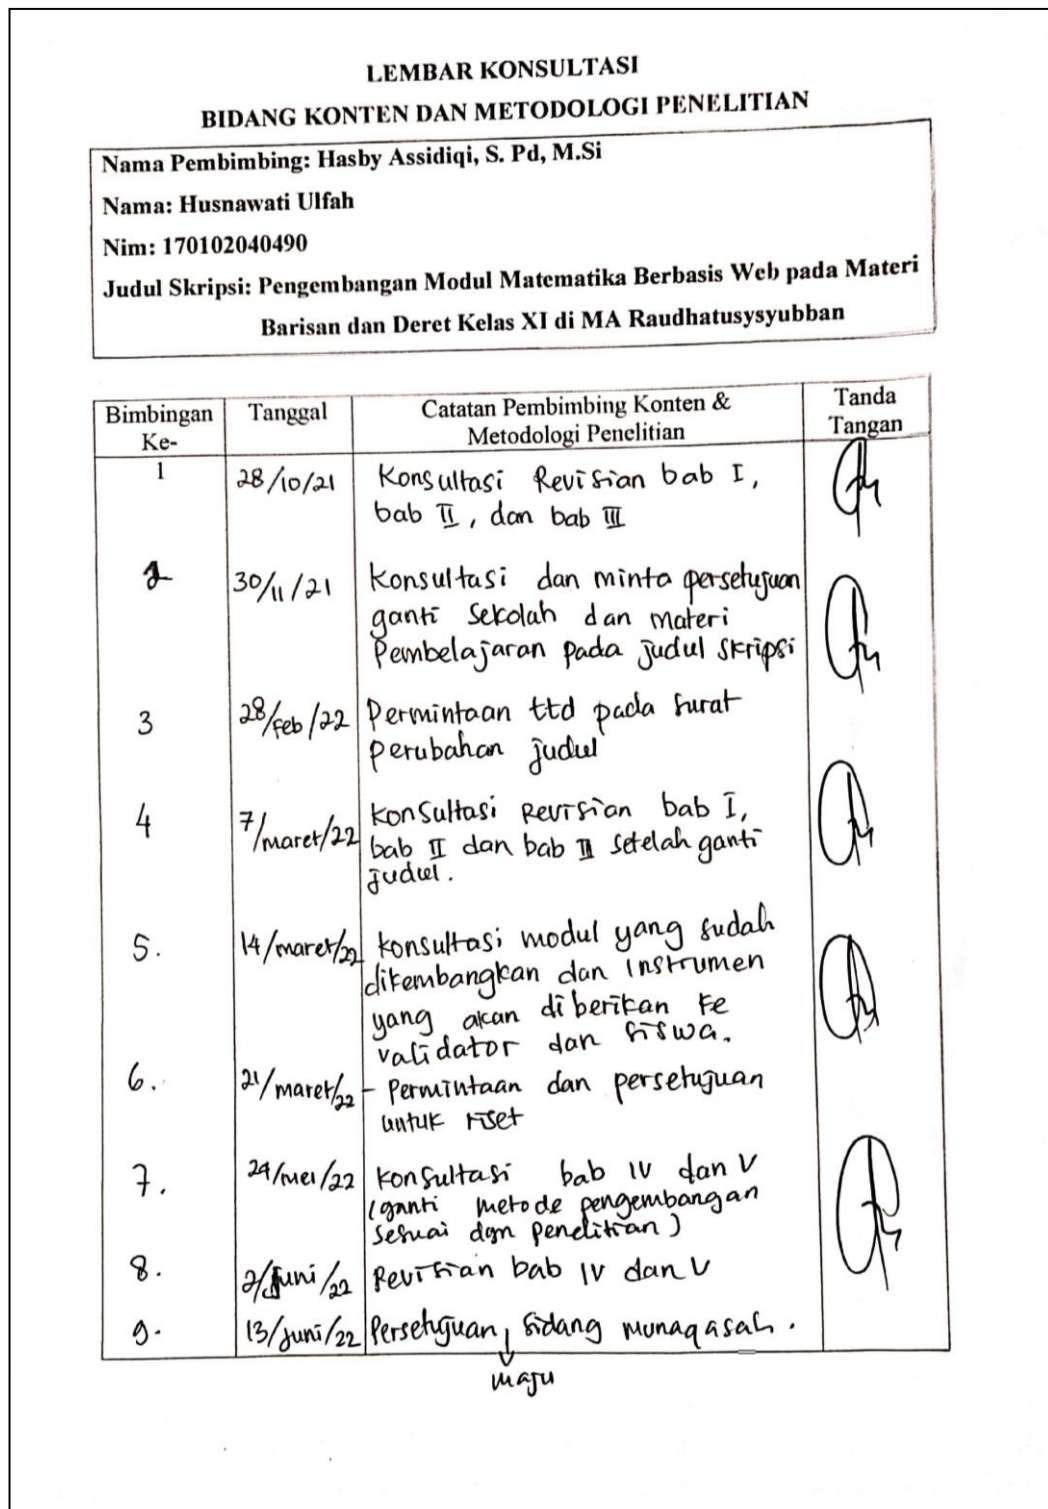 LEMBAR KONSULTASI
BIDANG KONTEN DAN METODOLOGI PENELITIAN
Nama Pembimbing: Hasby Assidiqi, S. Pd, M.Si
Nama: Husnawati Ulfah
Nim: 170102040490
Judul Skripsi: Pengembangan Modul Matematika Berbasis Web pada Materi
Barisan dan Deret Kelas XI di MA Raudhatusysyubban
Bimbingan Ke-
Tanggal
Catatan Pembimbing Konten &
Metodologi Penelitian
Tanda Tangan
1
28/10/21
Konsultasi Revisian bab I,
bab II, dan bab III
2
30/11/21
Konsultasi dan minta persetujuan
ganti sekolah dan materi
Pembelajaran pada judul skripsi
3
28/feb/22
Permintaan ttd pada surat
perubahan judul
4
7/maret/22
Konsultasi Revisian bab I,
bab II dan bab III setelah ganti
judul.
5.
14/maret/22
konsultasi modul yang sudah
dikembangkan dan instrumen
yang akan diberikan ke
validator dan siswa.
6.
21/maret/22
- Permintaan dan persetujuan
untuk riset
7.
24/mei/22
Konsultasi bab IV dan V
(ganti metode pengembangan
sesuai dgn penelitian)
8.
2/Juni/22
Revisian bab IV dan V
9.
13/juni/22
Persetujuan sidang munaqasah.
maju